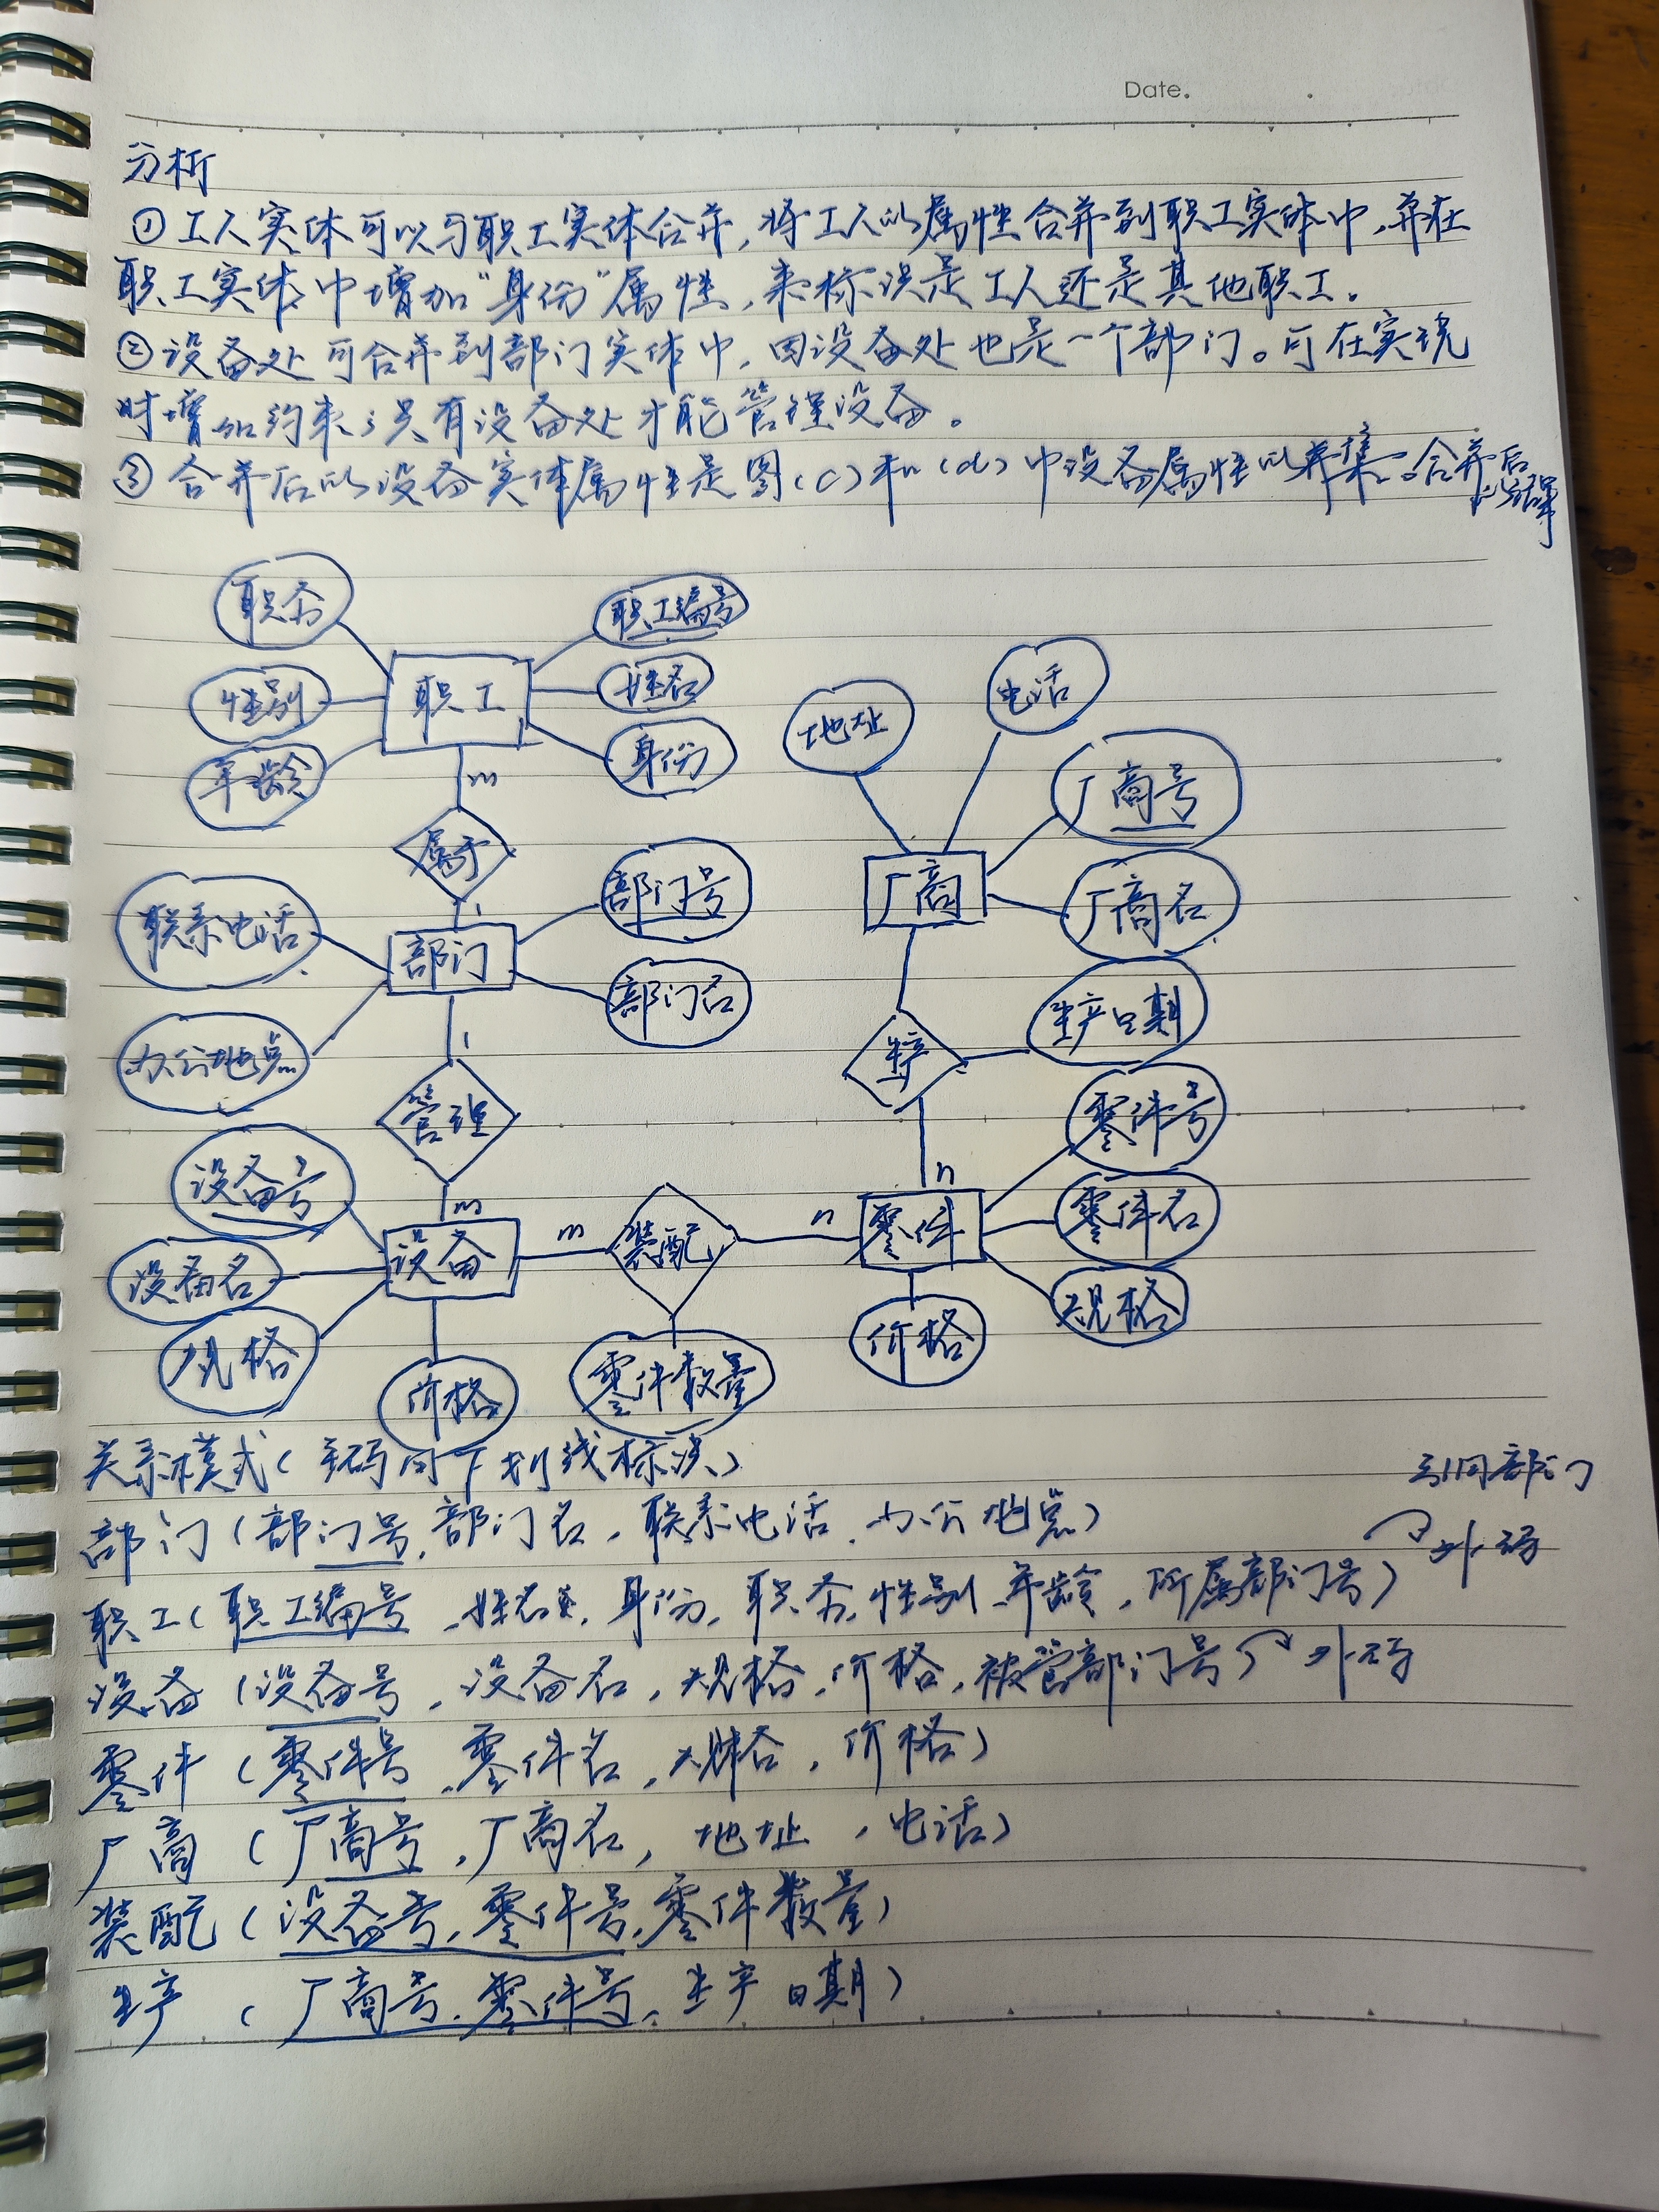 Date.
分析
①工人实体可以与职工实体合并,将工人的属性合并到职工实体中,并在
职工实体中增加“身份”属性,来标识是工人还是其他职工。
②设备处可合并到部门实体中,因设备处也是一个部门。可在实现
时增加约束:只有设备处才能管理设备。
③合并后的设备实体属性是图(c)和(d)中设备属性的并集。合并后
的结果
职务
职工编号
性别
职工
姓名
年龄
身份
m
属于
1
联系电话
部门
部门号
部门名
办公地点
1
管理
m
设备号
设备名
设备
规格
价格
m
装配
n
零件数量
地址
电话
厂商号
厂商
厂商名
生产日期
生产
n
零件号
零件
零件名
规格
价格
关系模式(主码向下划线标识)
引用部门
部门(部门号,部门名,联系电话,办公地点)
外码
职工(职工编号,姓名,身份,职务,性别,年龄,所属部门号)
设备(设备号,设备名,规格,价格,被管部门号) 外码
零件(零件号,零件名,规格,价格)
厂商(厂商号,厂商名,地址,电话)
装配(设备号,零件号,零件数量)
生产(厂商号,零件号,生产日期)